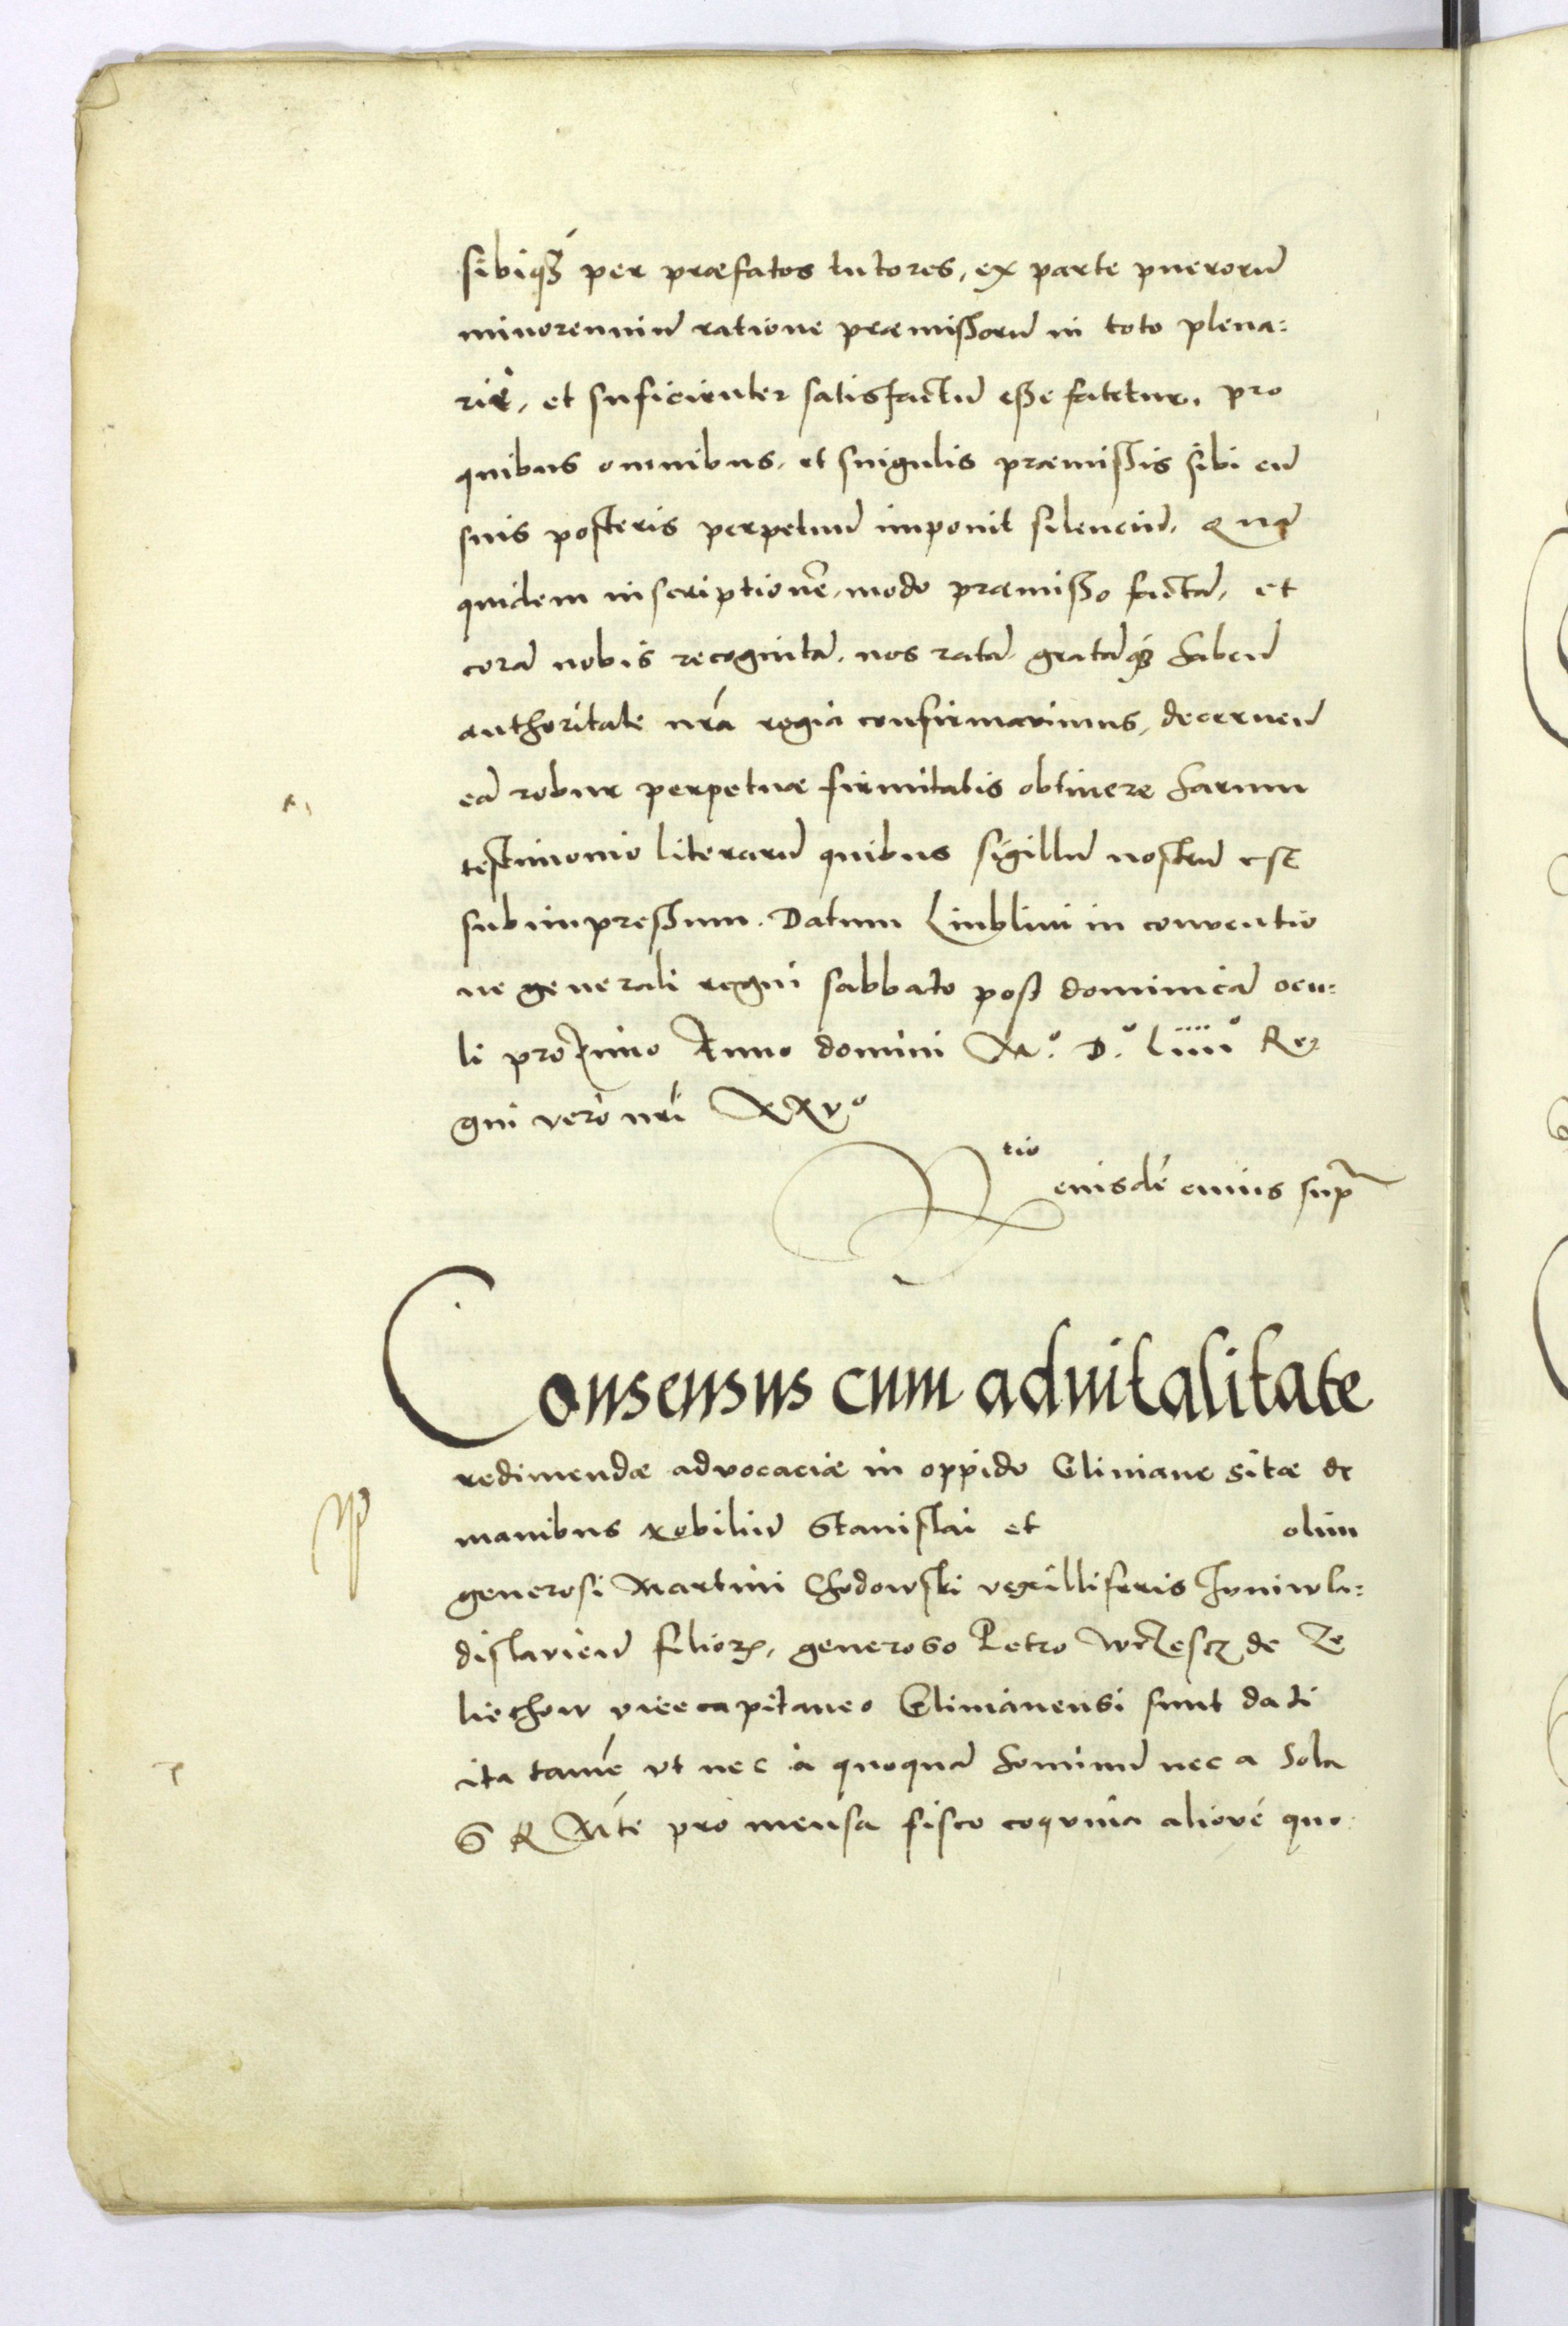 sibiqꝫ per præfatos tutores, ex parte puerorū
minorenniū ratione præmissorū in toto plena:
riè, et suficienter satisfactū esse fatetur, pro
quibus omnibus, et singulis præmissis sibi cū
suis posteris perpetuū imponit silenciū, Quā
quidem inscriptionē, modo præmisso factā, et
corā nobis recognitā, nos ratā gratāqꝫ haben̄
authoritate nrā regia confirmavimus, decernen̄
eā robur perpetuæ firmitatis obtinere harum
testimonio literarū quibus sigillū nostrū est
subimpressum. Datum Liublini in conventio
ne generali regni sabbato post dominicā ocu:
li proximo Anno domini M.º D.º Liiiiº Re
gni vero nrī XXvº
Rtio eiusdē cuius supra
Consensus cum advitalitate
redimendæ advocaciæ in oppido Gliniane sitæ de
manibus nobiliū Stanislai et olim
generosi Martini Chodowski vexilliferis Juniwla:
dislavien̄ filioꝝ, generoso Petro de Ze
liechow vicecapitaneo Glinianensi sunt dati
ita tamē ut nec à quoquā hominū nec a Sola
S R Mte pro mensa fisco coquina aliové quo